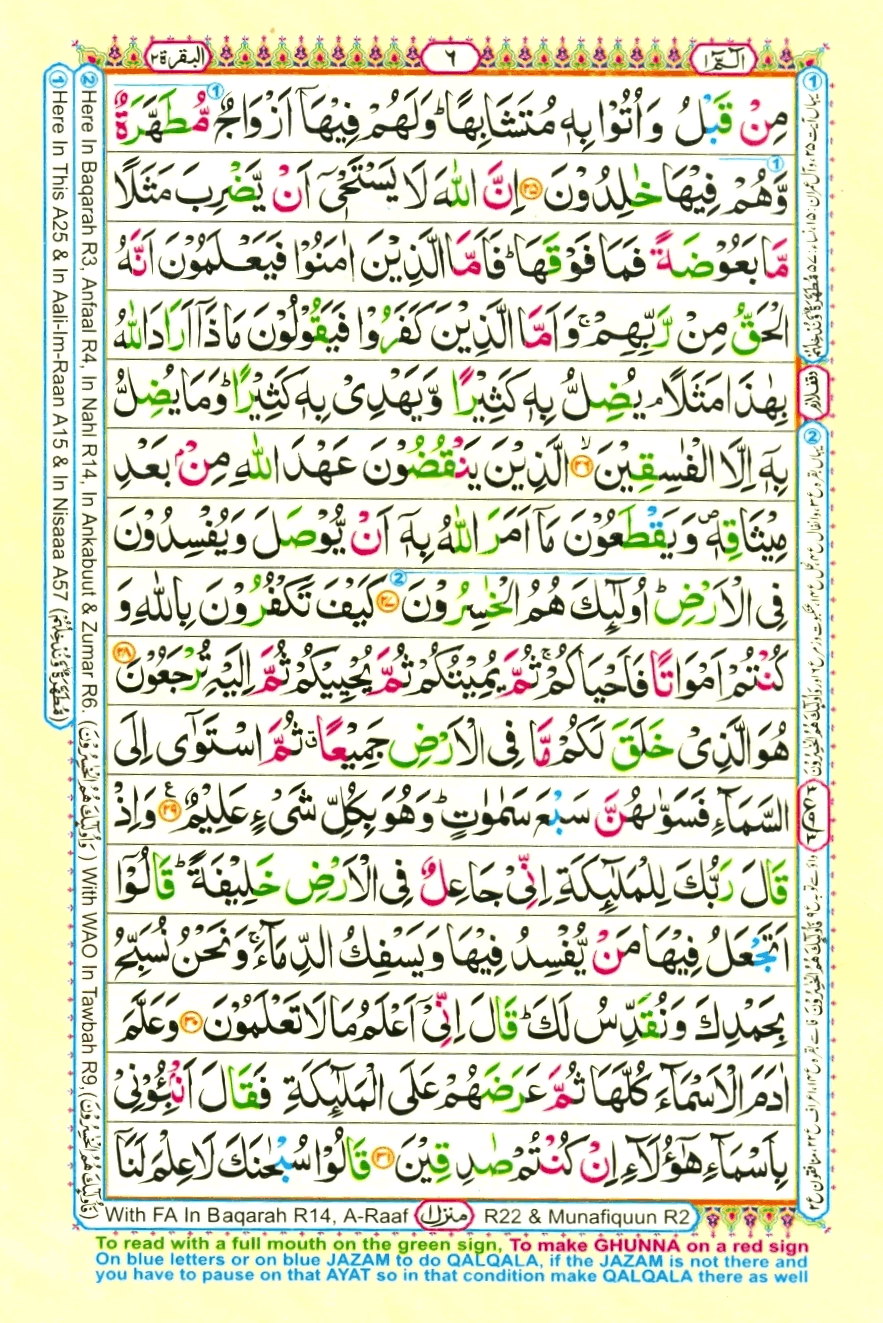 البقرة ٢
٦
الٓمّٓ ١
مِنْ قَبْلُ وَاُتُوْا بِهٖ مُتَشَابِهًا ؕ وَلَهُمْ فِيْهَاۤ اَزْوَاجٌ مُّطَهَّرَةٌ
وَّهُمْ فِيْهَا خٰلِدُوْنَ ﴿۲۵﴾ اِنَّ اللّٰهَ لَا يَسْتَحْیٖۤ اَنْ يَّضْرِبَ مَثَلًا
مَّا بَعُوْضَةً فَمَا فَوْقَهَا ؕ فَاَمَّا الَّذِيْنَ اٰمَنُوْا فَيَعْلَمُوْنَ اَنَّهُ
الْحَقُّ مِنْ رَّبِّهِمْ ۚ وَاَمَّا الَّذِيْنَ كَفَرُوْا فَيَقُوْلُوْنَ مَاذَاۤ اَرَادَ اللّٰهُ
بِهٰذَا مَثَلًا ۘ يُضِلُّ بِهٖ كَثِيْرًا وَّيَهْدِیْ بِهٖ كَثِيْرًا ؕ وَمَا يُضِلُّ
بِهٖۤ اِلَّا الْفٰسِقِيْنَ ﴿۲۶﴾ ۙ الَّذِيْنَ يَنْقُضُوْنَ عَهْدَ اللّٰهِ مِنْۢ بَعْدِ
مِيْثَاقِهٖ ۪ وَيَقْطَعُوْنَ مَاۤ اَمَرَ اللّٰهُ بِهٖۤ اَنْ يُّوْصَلَ وَيُفْسِدُوْنَ
فِی الْاَرْضِ ؕ اُولٰٓئِكَ هُمُ الْخٰسِرُوْنَ ﴿۲۷﴾ كَيْفَ تَكْفُرُوْنَ بِاللّٰهِ وَ
كُنْتُمْ اَمْوَاتًا فَاَحْيَاكُمْ ۚ ثُمَّ يُمِيْتُكُمْ ثُمَّ يُحْيِيْكُمْ ثُمَّ اِلَيْهِ تُرْجَعُوْنَ ﴿۲۸﴾
هُوَ الَّذِیْ خَلَقَ لَكُمْ مَّا فِی الْاَرْضِ جَمِيْعًا ۗ ثُمَّ اسْتَوٰۤی اِلَی
السَّمَآءِ فَسَوّٰىهُنَّ سَبْعَ سَمٰوٰتٍ ؕ وَهُوَ بِكُلِّ شَیْءٍ عَلِيْمٌ ﴿۲۹﴾ وَاِذْ
قَالَ رَبُّكَ لِلْمَلٰٓئِكَةِ اِنِّیْ جَاعِلٌ فِی الْاَرْضِ خَلِيْفَةً ؕ قَالُوْۤا
اَتَجْعَلُ فِيْهَا مَنْ يُّفْسِدُ فِيْهَا وَيَسْفِكُ الدِّمَآءَ ۚ وَنَحْنُ نُسَبِّحُ
بِحَمْدِكَ وَنُقَدِّسُ لَكَ ؕ قَالَ اِنِّیْۤ اَعْلَمُ مَا لَا تَعْلَمُوْنَ ﴿۳۰﴾ وَعَلَّمَ
اٰدَمَ الْاَسْمَآءَ كُلَّهَا ثُمَّ عَرَضَهُمْ عَلَی الْمَلٰٓئِكَةِ فَقَالَ اَنْۢبِئُوْنِیْ
بِاَسْمَآءِ هٰۤؤُلَآءِ اِنْ كُنْتُمْ صٰدِقِيْنَ ﴿۳۱﴾ قَالُوْا سُبْحٰنَكَ لَا عِلْمَ لَنَاۤ
① Here In This A25 & In Aali-Im-Raan A15 & In Nisaaa A57
② Here In Baqarah R3, Anfaal R4, In Nahl R14, In Ankabuut & Zumar R6. (وَاُولٰٓئِكَ هُمُ الْخٰسِرُوْنَ) With WAO In Tawbah R9, (فَاُولٰٓئِكَ هُمُ الْخٰسِرُوْنَ)
With FA In Baqarah R14, A-Raaf منزل ١ R22 & Munafiquun R2
To read with a full mouth on the green sign, To make GHUNNA on a red sign
On blue letters or on blue JAZAM to do QALQALA, if the JAZAM is not there and
you have to pause on that AYAT so in that condition make QALQALA there as well